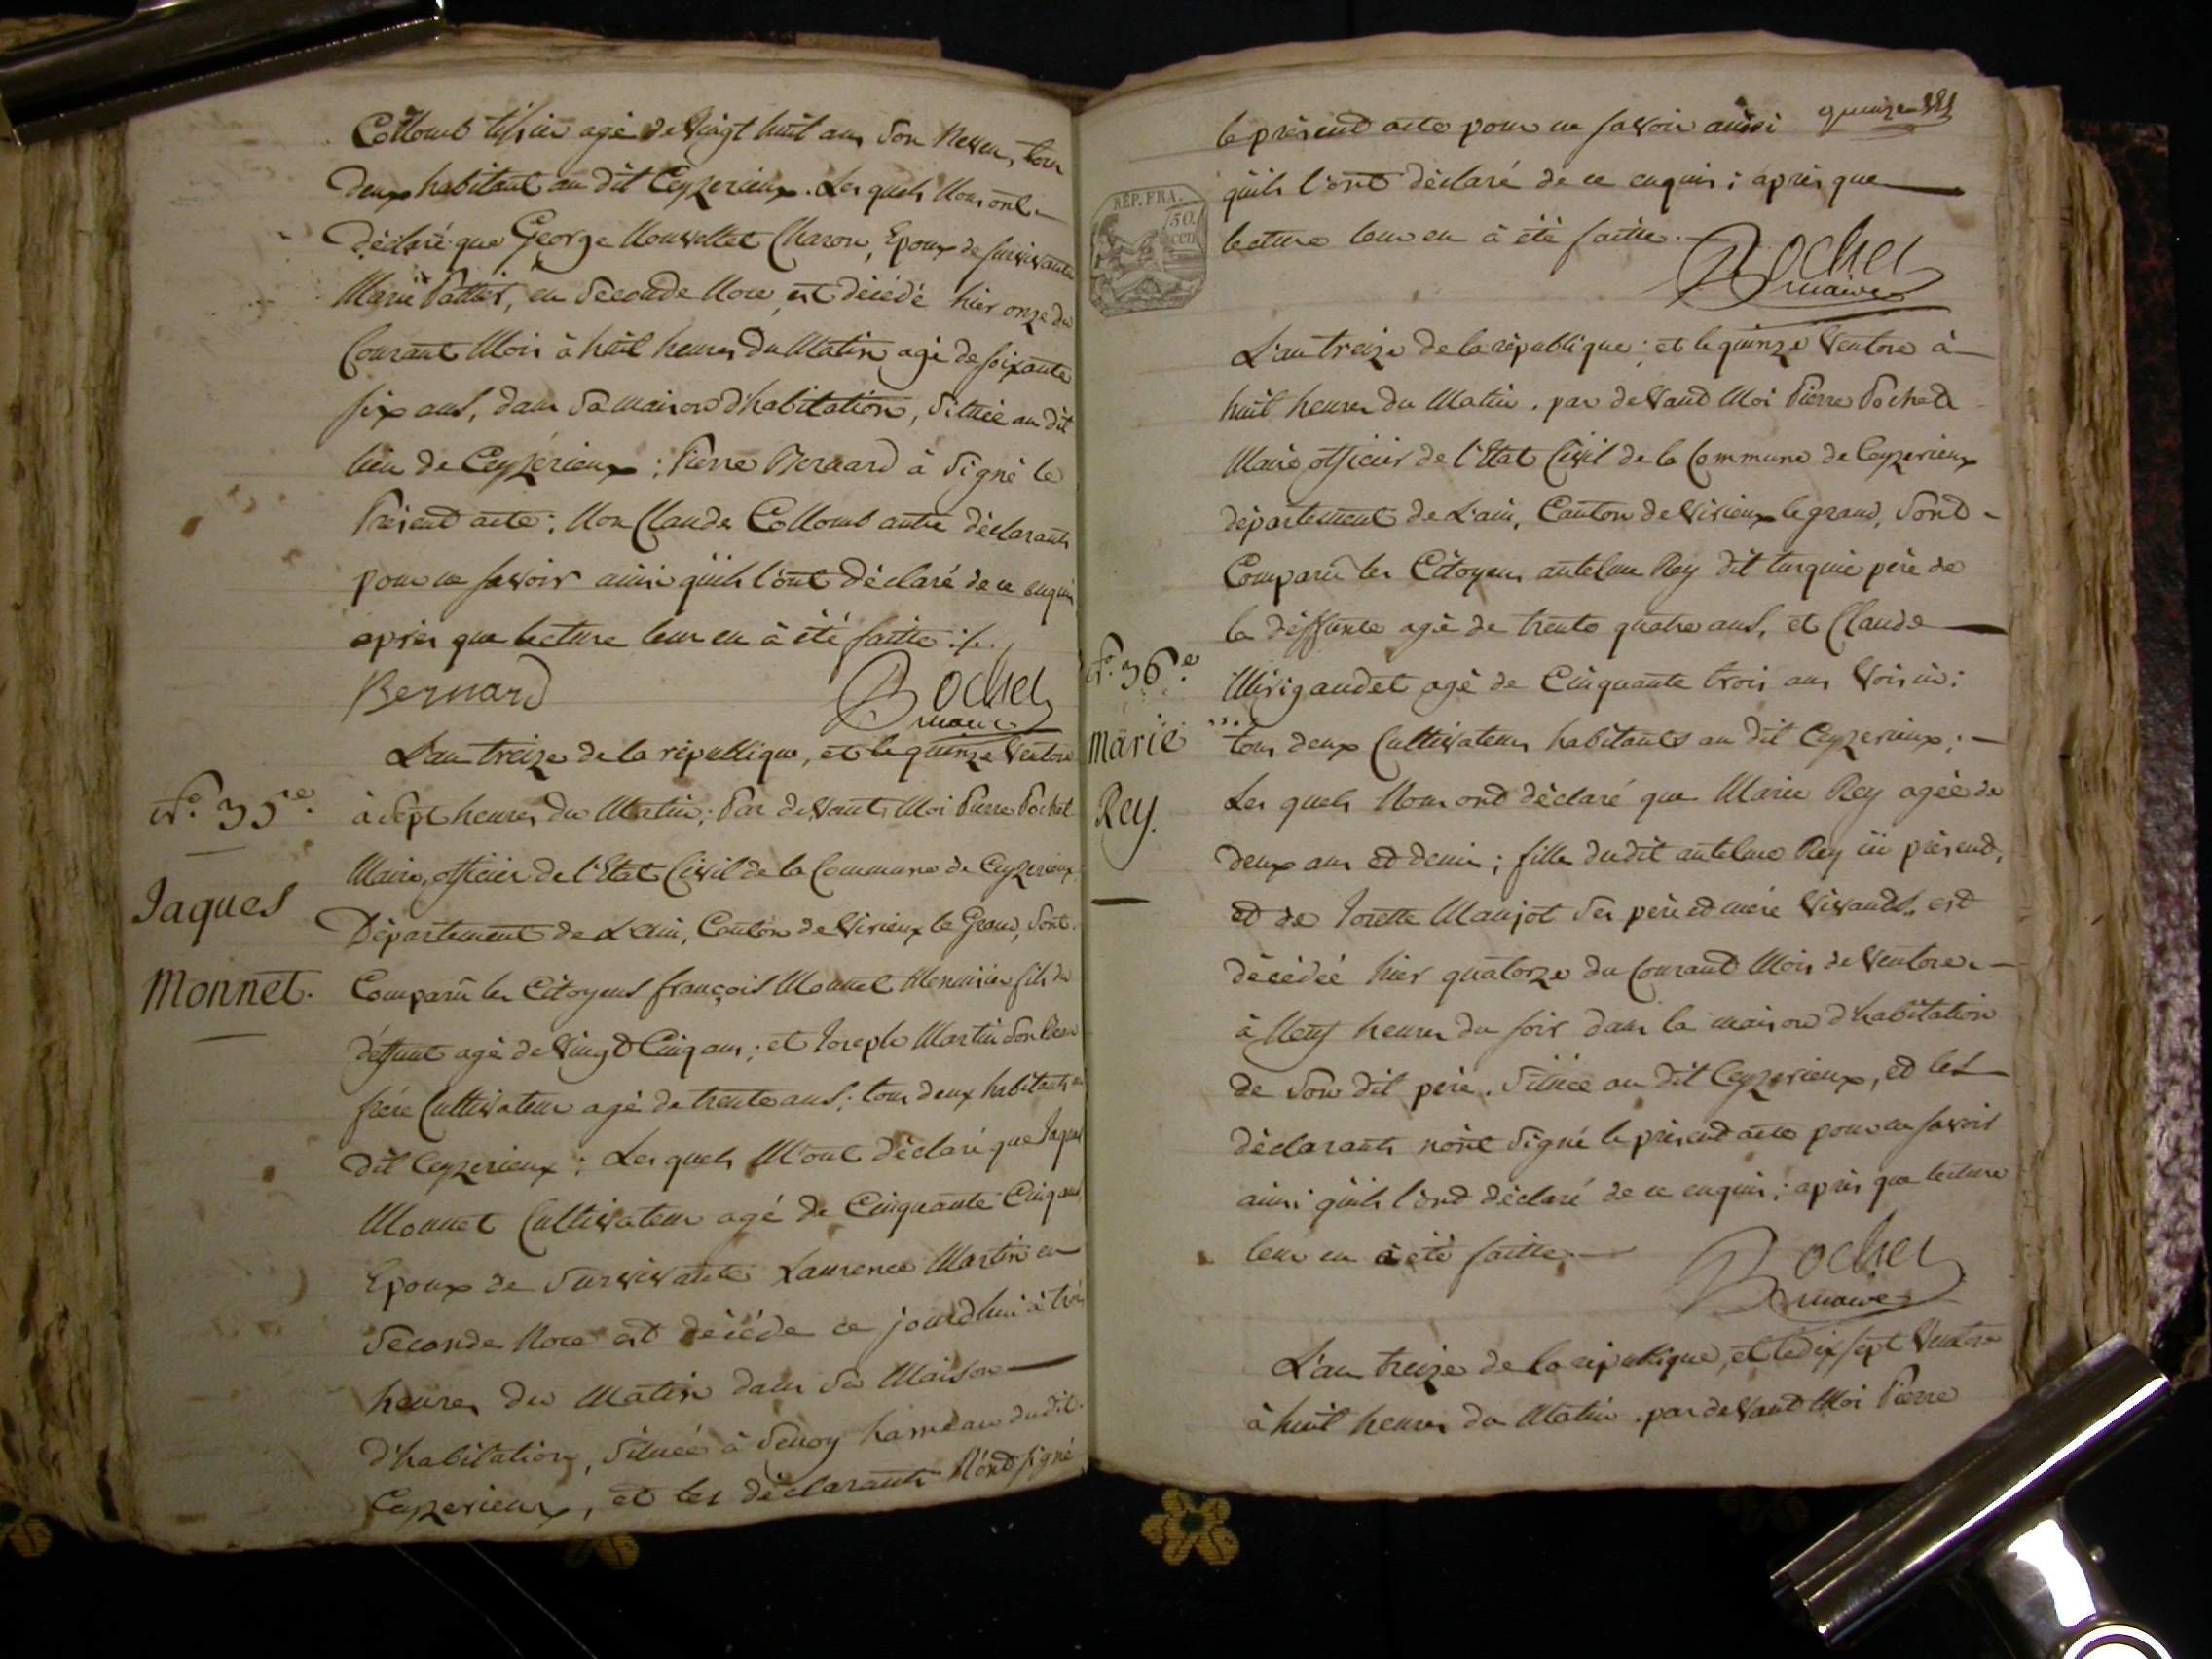 Collomb tissier agé de Vingt huit ans son Neveu, tous
deux habitant au dit Ceyzerieux. Les quels Nous ont
Déclaré que George Nouvellet Charon, Epoux de survivante
Marie Pattier, en Seconde Noce, est décédé hier onze du
Courant Mois à huit heures du Matin agé de soixante
six ans, dans sa maison d'habitation, Située au dit
lieu de Ceyzérieux; Pierre Bernard à Signé le
Présend acte; Non Claude Collomb autre déclarants
pour ne savoir ainsi quils l'ont Déclaré de ce enquis
apries que lecture leur en à été faitte ./.
Bernard
Pochet
maire
L'an treize de la république, et le quinze Ventose
N.° 35.e
à Sept heures du Matin; Par deVant Moi Pierre Pochet
Maire, officier de l'Etat Civil de la Commune de Ceyzerieux
Jaques
Département de L'ain, Canton de Virieux le Grand, Sont
Monnet.
Comparû les Citoyens françois Monnet Menuisier fils du
déffunt agé de Vingt Cinq ans; et Joseph Martin son beau
frére Cultivateur agé de trente ans; tous deux habitants au
dit Ceyzerieux; Les quels M'ont déclaré que Jaques
Monnet Cultivateur agé de Cinquante Cinq ans
Epoux de Survivante Laurence Martin en
Seconde Noce est décédé ce jourd'hui à trois
heures du Matin dans sa Maison
d'habitation, Située à hameau dudit
Ceyzerieux, et les déclarants N'ond signé
quinze
le présend acte pour ne savoir ainsi
quils l'ont déclaré de ce enquis; après que
RÉP. FRA.
50.
CEN
lecture leur en à été faitte.
Pochet
maire
L'an treize de la république; et le quinze Ventose à
huit heures du Matin. par deVand Moi Pierre Pochet
Maire officier de l'Etat Civil de la Commune de Ceyzerieux
département de L'ain, Canton de Virieux le grand, Sont
Comparû les Citoyens antelme Rey dit turquie père de
la déffunte agé de trente quatre ans, et Claude
N.° 36.e
Mirigaudet agé de Cinquante trois ans Voisin;
Marie
tous deux Cultivateurs habitants au dit Ceyzerieux;
Rey.
Les quels Nous ond déclaré que Marie Rey agée de
deux ans et demie; fille dudit antelme Rey ici présend,
et de Josette Maujot ses père et mère Vivands.. est
décédée hier quatorze du Courand Mois de Ventose
à Neuf heures du soir dans la maison d'habitation
de Son dit père. Située au dit Ceyzerieux, et les
déclarants n'ont Signé le présend acte pour ne savoir
ainsi quils l'ond déclaré de ce enquis; après que lecture
leur en à été faitte.
Pochet
maire
L'an treize de la république, et le dix sept Ventose
à huit heures du Matin. par deVand Moi Pierre